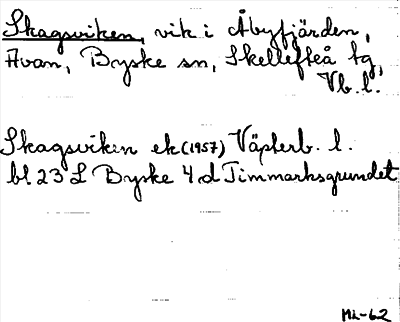 Skagsviken, vik i Åbyfjärden,
Avan, Byske sn, Skellefteå tg,
Vb. l.
Skagsviken ek (1957) Västerb. l.
bl. 23 L Byske 4 d Timmarksgrundet
ML-62